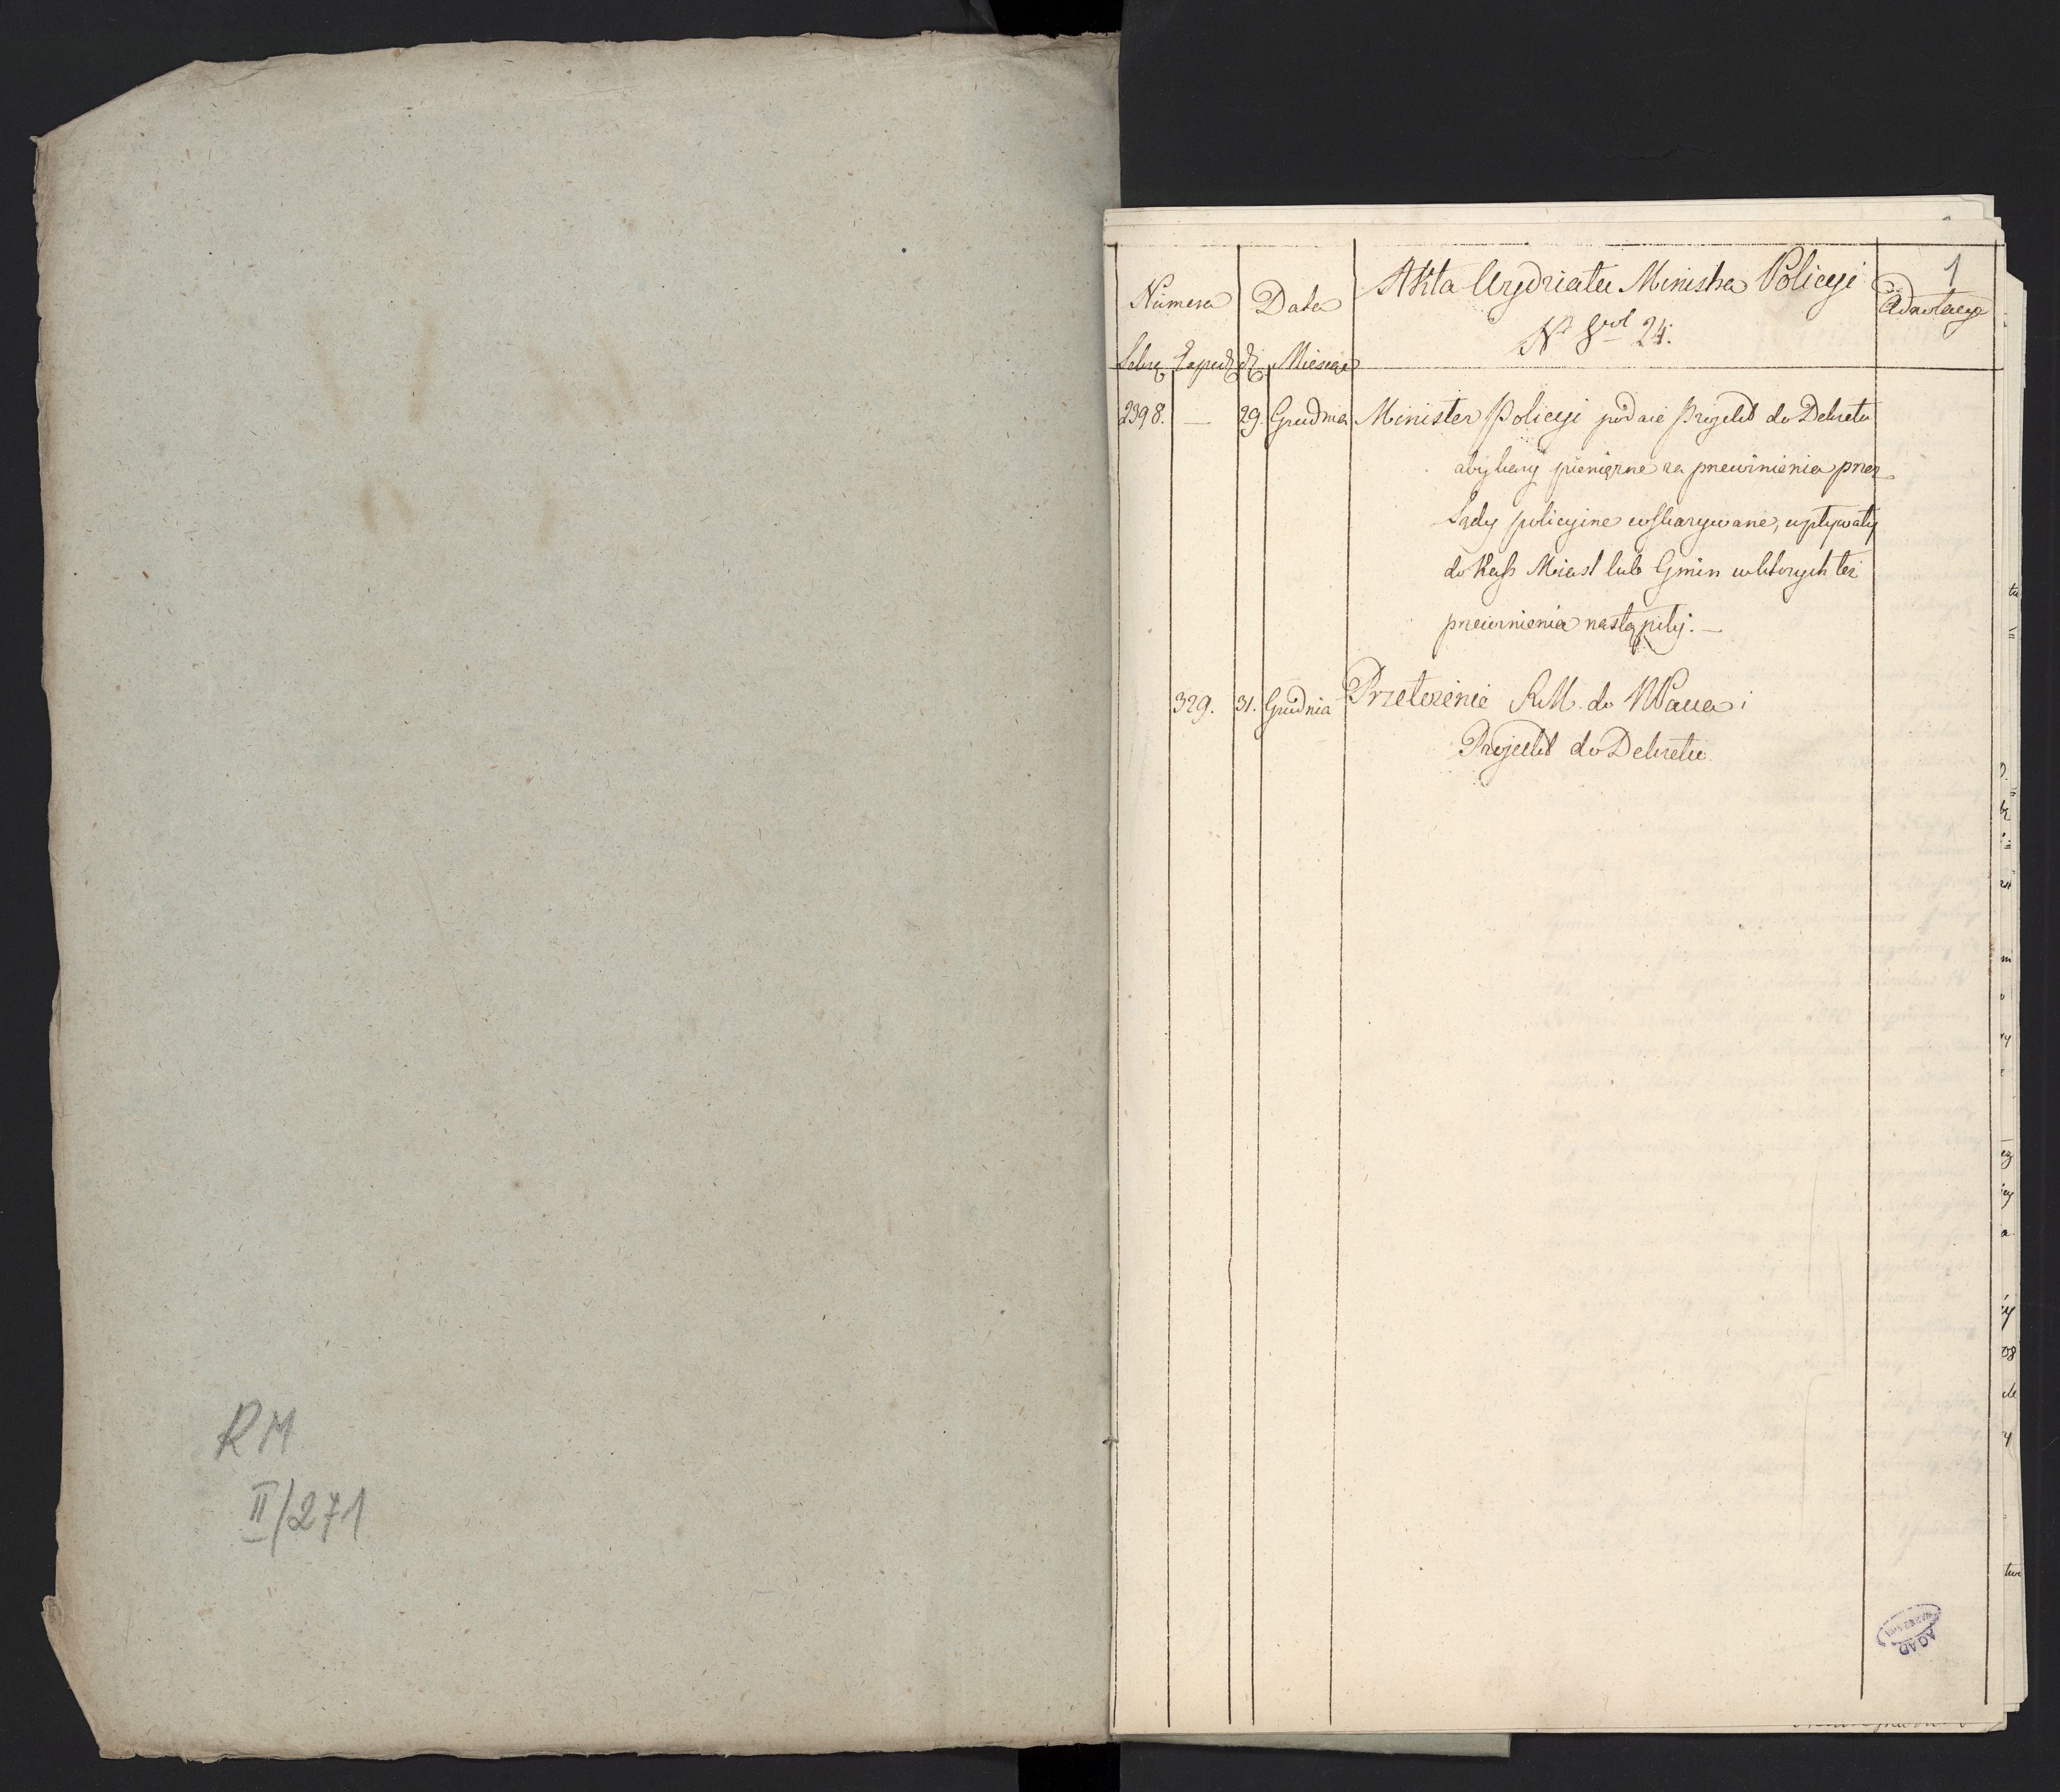 RM
II/271
1
Akta Urzędziatu Ministra Policyi
Numera Data Adnotacye
Nº 8 vol 24.
Sekre Exped d Miesiąc
2398. — 29. Grudnia Minister Policyi podaie Projekt do Dekretu
aby kary pienięzne za przewinienia przez
Sądy policyine wskazywane, wpływały
do Kass Miast lub Gmin w ktorych też
przewinienia nastąpiły. —
329. 31. Grudnia Przełożenie R.M. do NPana i
Projekt do Dekretu
AGAD
WARSZAWA